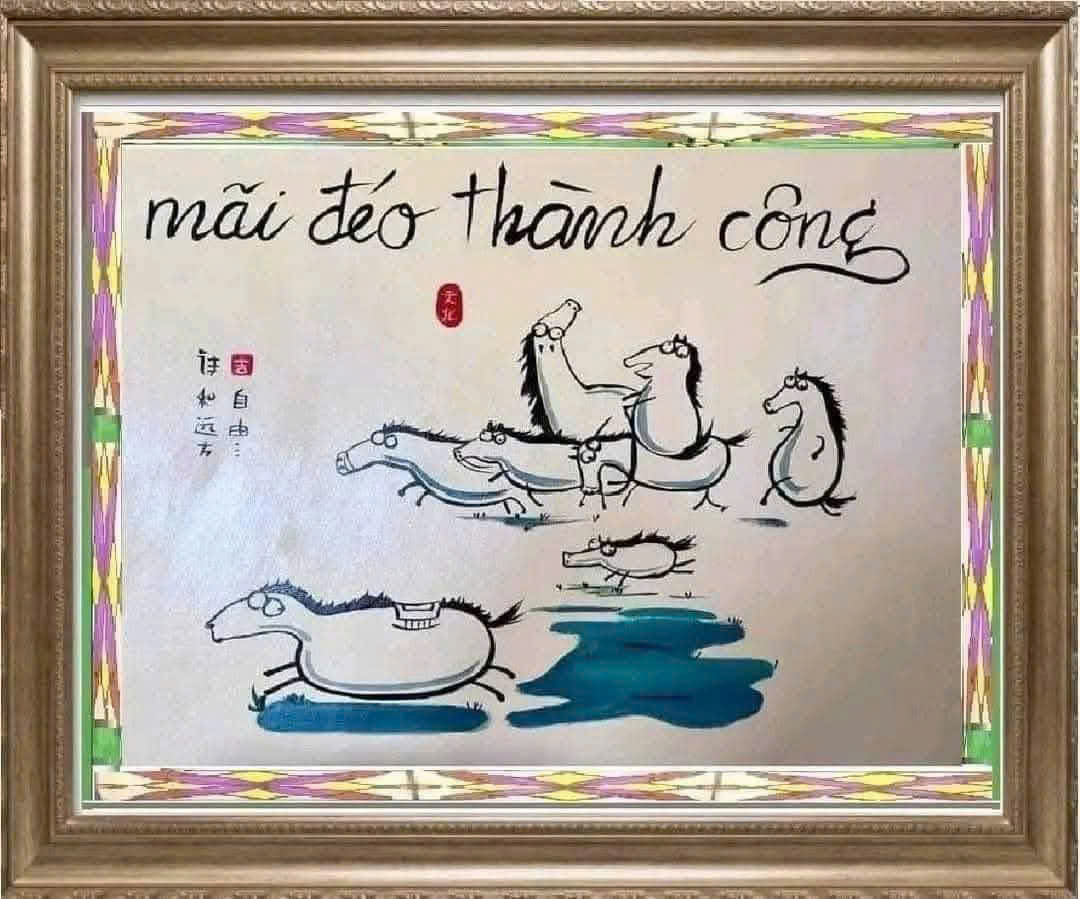 mãi đéo thành công
吉
自由
和远方